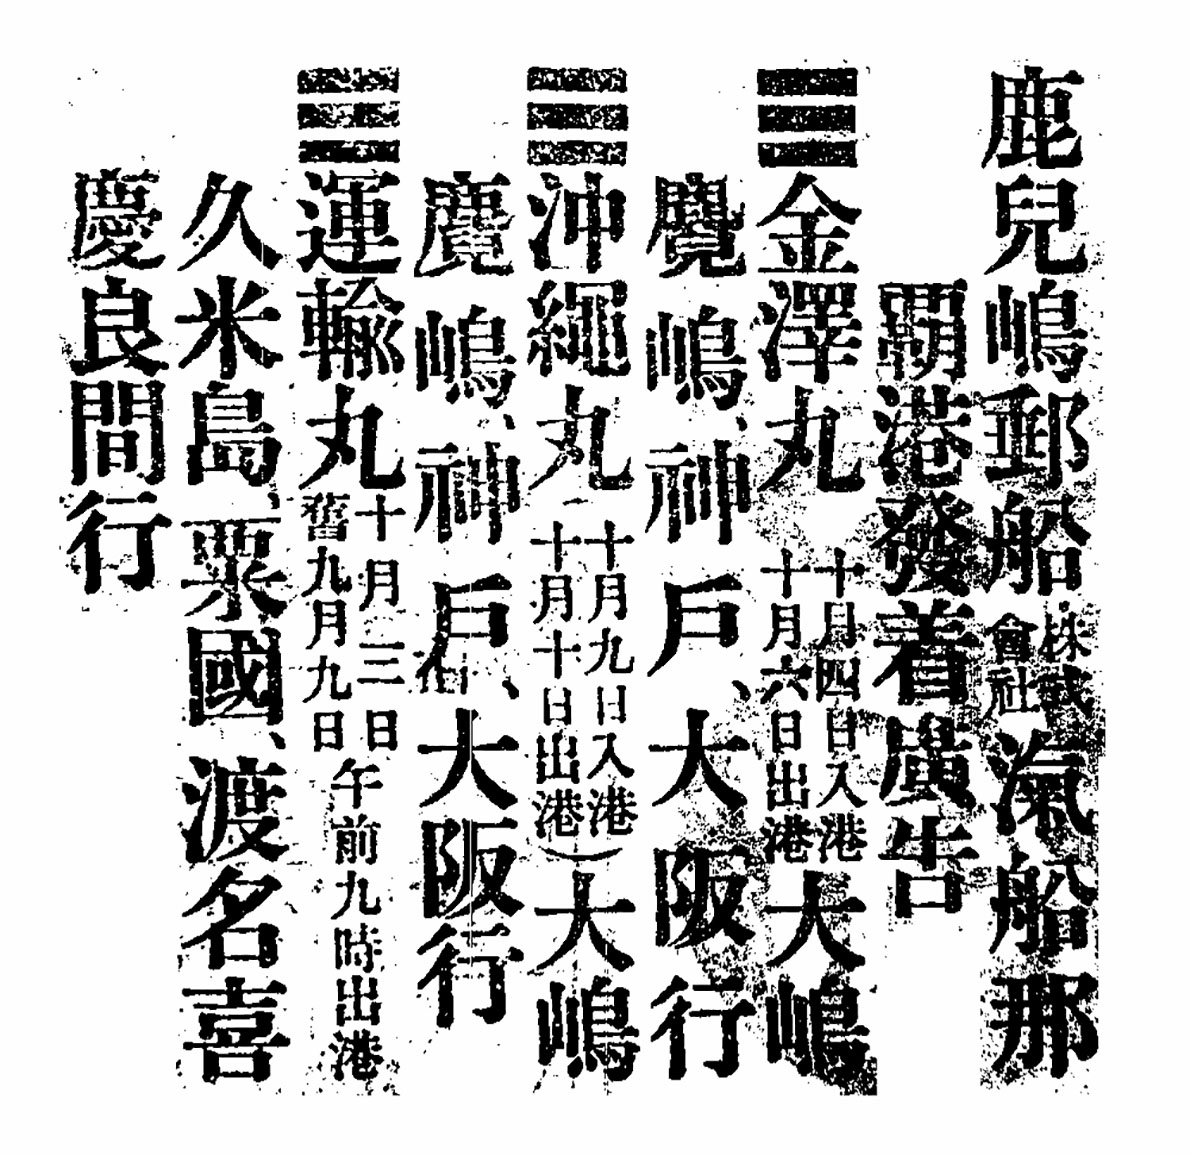 鹿兒嶋郵船株式會社滊船那
覇港發着廣告
☰金澤丸 十月四日入港 十月六日出港 大嶋
麑嶋、神戶、大阪行
☰沖繩丸 十月九日入港 十月十日出港)大嶋
麑嶋、神戶、大阪行
☰運輸丸 十月三日 舊九月九日 午前九時出港
久米島、粟國、渡名喜
慶良間行